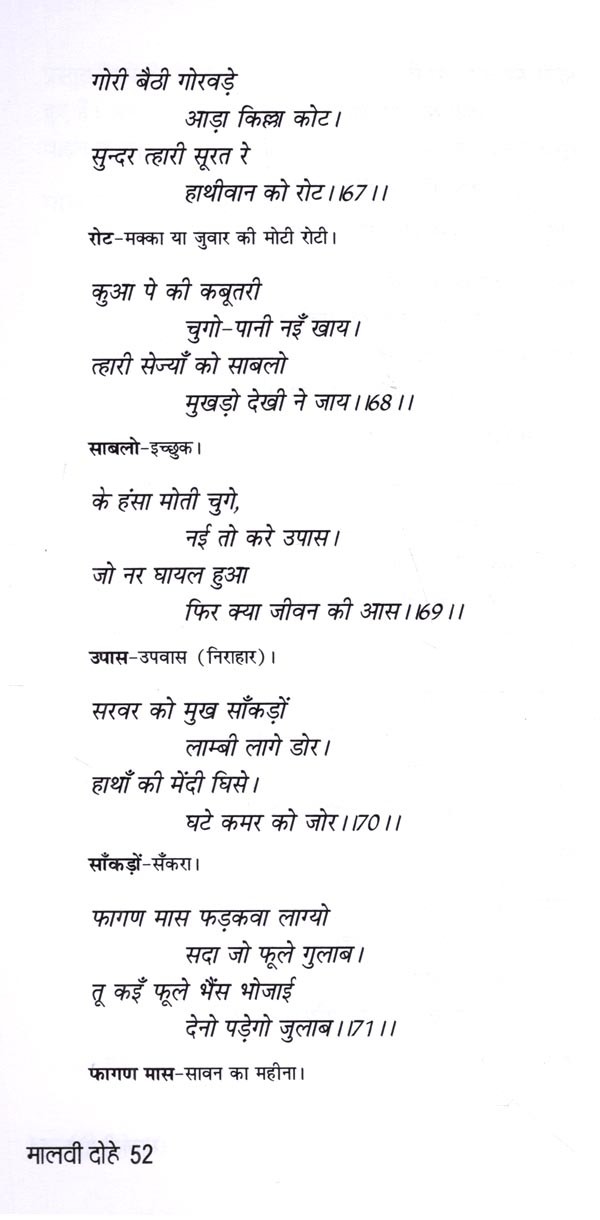 गोरी बैठी गोरवड़े
आड़ा किल्ला कोट।
सुन्दर त्हारी सूरत रे
हाथीवान को रोट।।67।।
रोट-मक्का या जुवार की मोटी रोटी।
कुआ पे की कबूतरी
चुगो-पानी नइँ खाय।
त्हारी सेज्याँ को साबलो
मुखड़ो देखी ने जाय।।68।।
साबलो-इच्छुक।
के हंसा मोती चुगे,
नई तो करे उपास।
जो नर घायल हुआ
फिर क्या जीवन की आस।।69।।
उपास-उपवास (निराहार)।
सरवर को मुख साँकड़ों
लाम्बी लागे डोर।
हाथाँ की मेंदी घिसे।
घटे कमर को जोर।।70।।
साँकड़ों-सँकरा।
फागण मास फड़कवा लाग्यो
सदा जो फूले गुलाब।
तू कइँ फूले भैंस भोजाई
देनो पड़ेगो जुलाब।।71।।
फागण मास-सावन का महीना।
मालवी दोहे 52